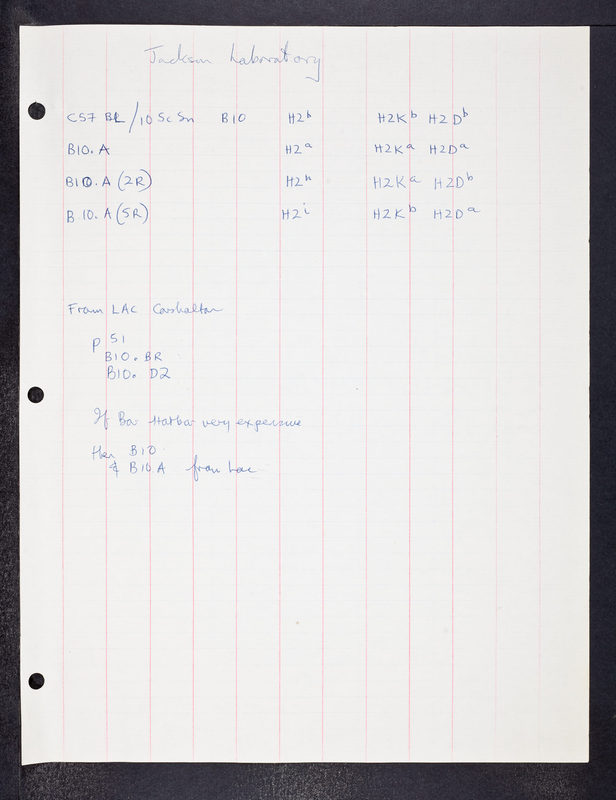 Jackson Laboratory
C57 BL/10 Sc Sn B10 H2b H2Kb H2Db
B10.A H2a H2Ka H2Da
B10.A (2R) H2h H2Ka H2Db
B10.A (5R) H2i H2Kb H2Da
From LAC Carshalton
p 51
B10.BR
B10.D2
If Bar Harbor very expensive
then B10
& B10A from Lac